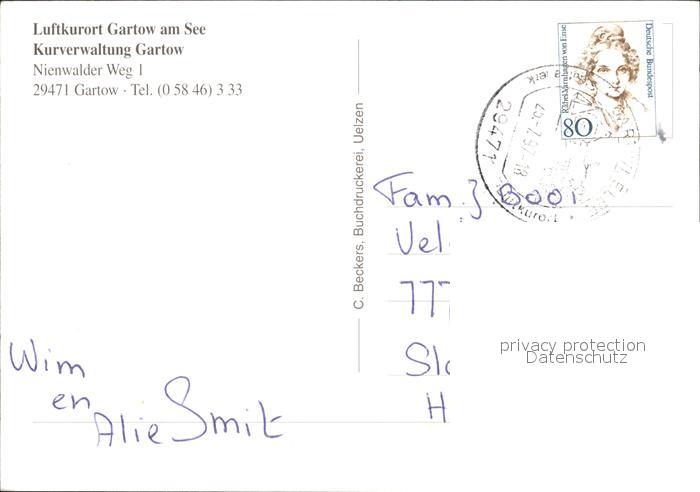 Luftkurort Gartow am See
Kurverwaltung Gartow
Nienwalder Weg 1
29471 Gartow · Tel. (0 58 46) 3 33
C. Beckers, Buchdruckerei, Uelzen
Rahel Varnhagen von Ense
Deutsche Bundespost
80
29471
Luftkurort
Fam.
Vel
777
Slo
H
privacy protection
Datenschutz
Wim
en
Alie Smit